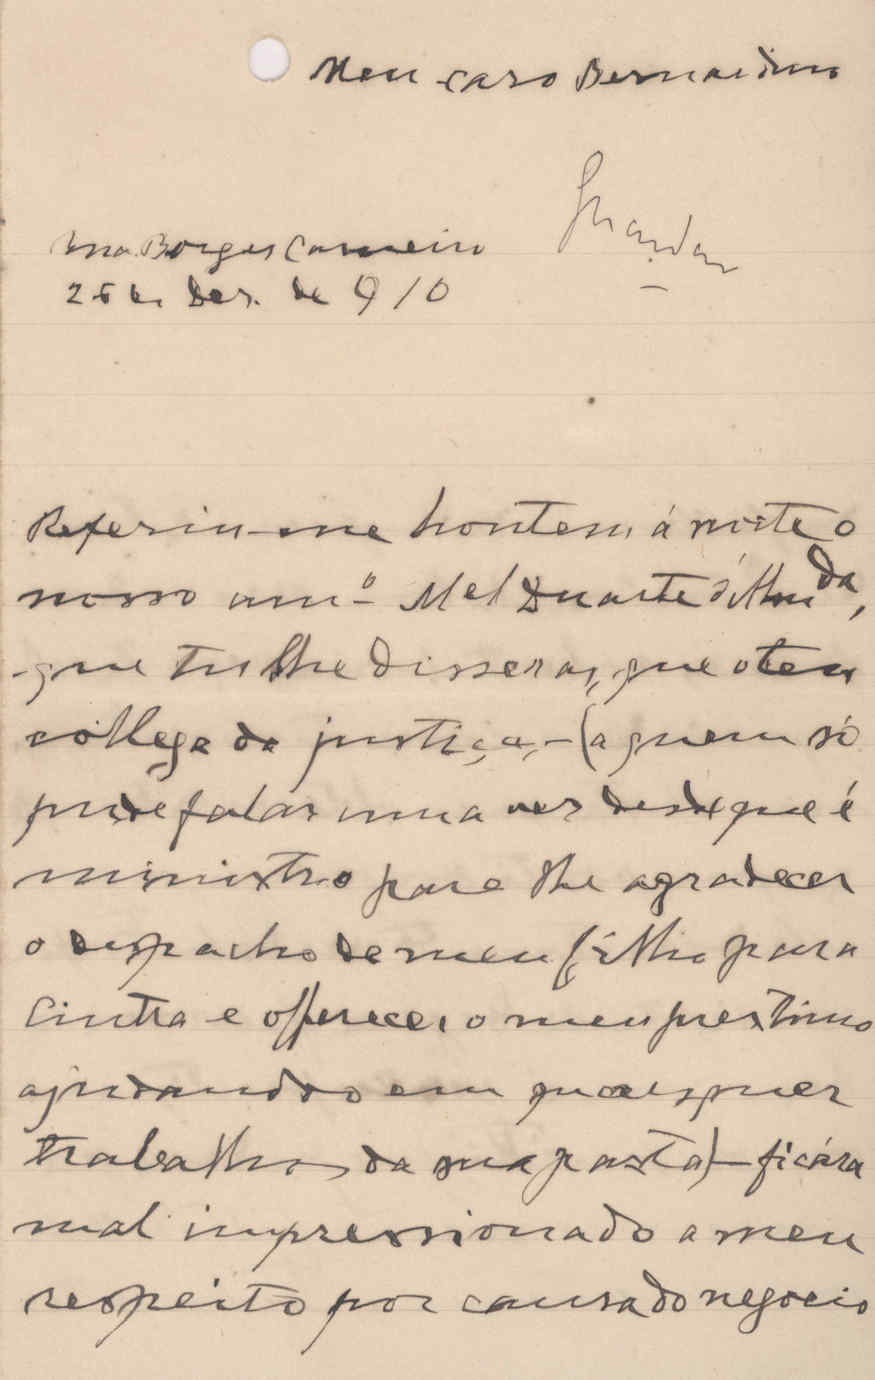 Meu caro Bernardino
Guardar
Rua Borges Carneiro
26 de Dez. de 910
Referiu-me hontem á noite o
nosso am.º Mel Duarte d'Almda,
que tu lhe disseras, que o teu
collega da justiça, - (a quem só
pude falar uma vez desde que é
ministro para lhe agradecer
o despacho de meu filho para
Cintra e offerecer o meu prestimo
ajudando-o em quaesquer
trabalhos da sua pasta) - ficára
mal impressionado a meu
respeito por causa do negocio